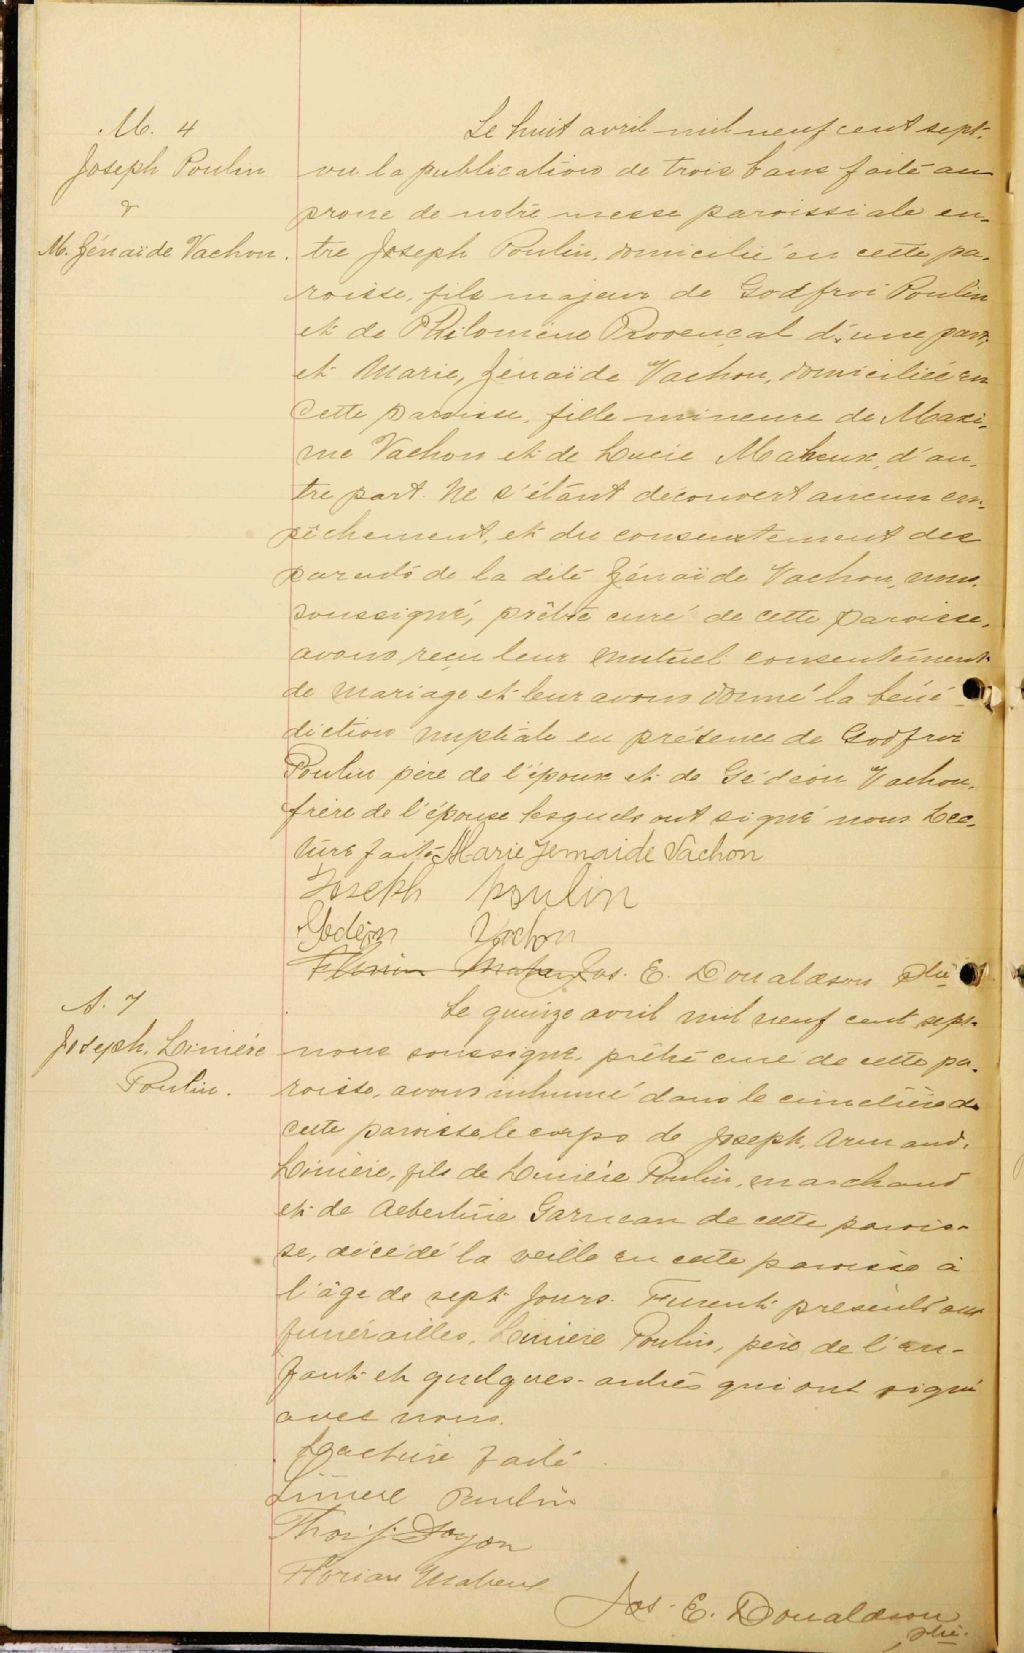 M. 4
Joseph Poulin
&
M. Zénaïde Vachon.
Le huit avril mil neuf cent sept.
vu la publication de trois bans faite au
prone de notre messe paroissiale en-
tre Joseph Poulin, domicilié en cette pa-
roisse, fils majeur de Godfroi Poulin
et de Philomène Provençal d'une part,
et Marie, Zénaïde Vachon, domiciliée en
cette paroisse, fille mineure de Maxi-
me Vachon et de Lucie Maheux, d'au-
tre part. Ne s'étant découvert aucun em-
pêchement, et du consentement des
parents de la dite Zénaïde Vachon, nous
soussigné, prêtre curé de cette paroisse,
avons reçu leur mutuel consentement
de mariage et leur avons donné la béné-
diction nuptiale en présence de Godfroi
Poulin père de l'époux et de Gédéon Vachon,
frère de l'épouse lesquels ont signé nous Lec-
ture faite Marie Zenaide Vachon
Joseph Poulin
Gedéon Vachon
Florian Maheux Jos. E. Donaldson Ptre
S. 7
Joseph, Linière
Poulin.
Le quinze avril mil neuf cent sept.
nous soussigné, prêtre curé de cette pa-
roisse, avons inhumé dans le cimetière de
cette paroisse le corps de Joseph, Armand,
Linière, fils de Linière Poulin, marchand
et de Albertine Garneau de cette parois-
se, décédé la veille en cette paroisse à
l'âge de sept jours. Furent présents aux
funérailles, Linière Poulin, père de l'en-
fant et quelques-autres qui ont signé
avec nous.
Lecture faite
Linière Poulin
Thos. J. Doyon
Florian Maheux
Jos. E. Donaldson
ptre.